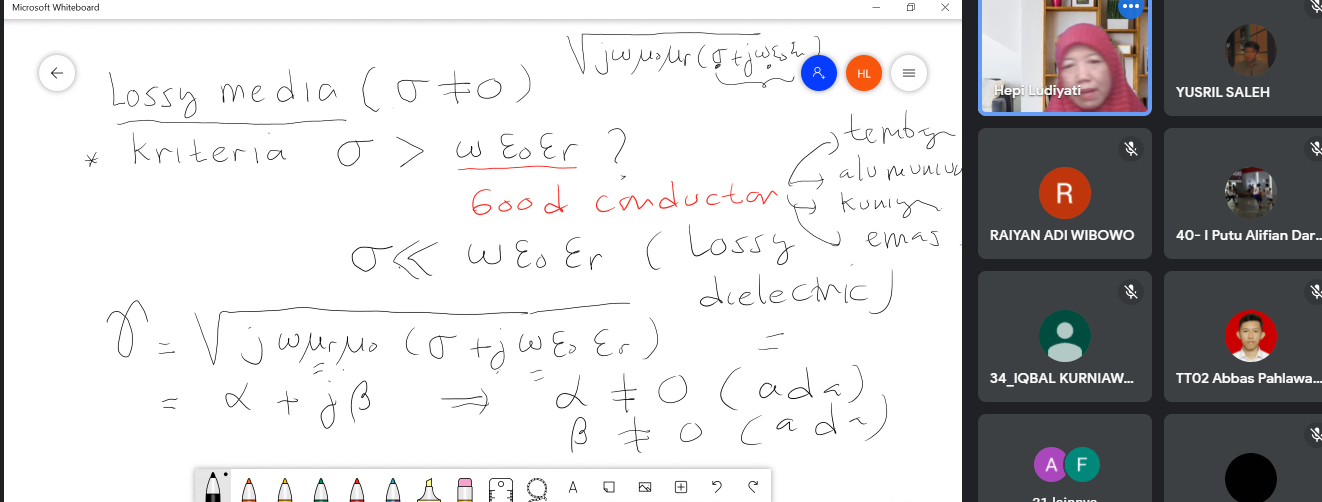 Microsoft Whiteboard
√jωμ₀μr(σ+jωε₀εr)
HL
Lossy media (σ ≠ 0)
* kriteria σ > ωε₀εr ?
Good conductor
alumunium
kuningan
emas
σ << ωε₀εr (Lossy
dielectric)
γ = √jωμrμ₀ (σ + jωε₀εr) =
= α + jβ → α ≠ 0 (ada)
β ≠ 0 (ada)
A
Hepi Ludiyati
YUSRIL SALEH
R
RAIYAN ADI WIBOWO
40- I Putu Alifian Dar...
34_IQBAL KURNIAW...
TT02 Abbas Pahlawa...
A F
21 lainnya